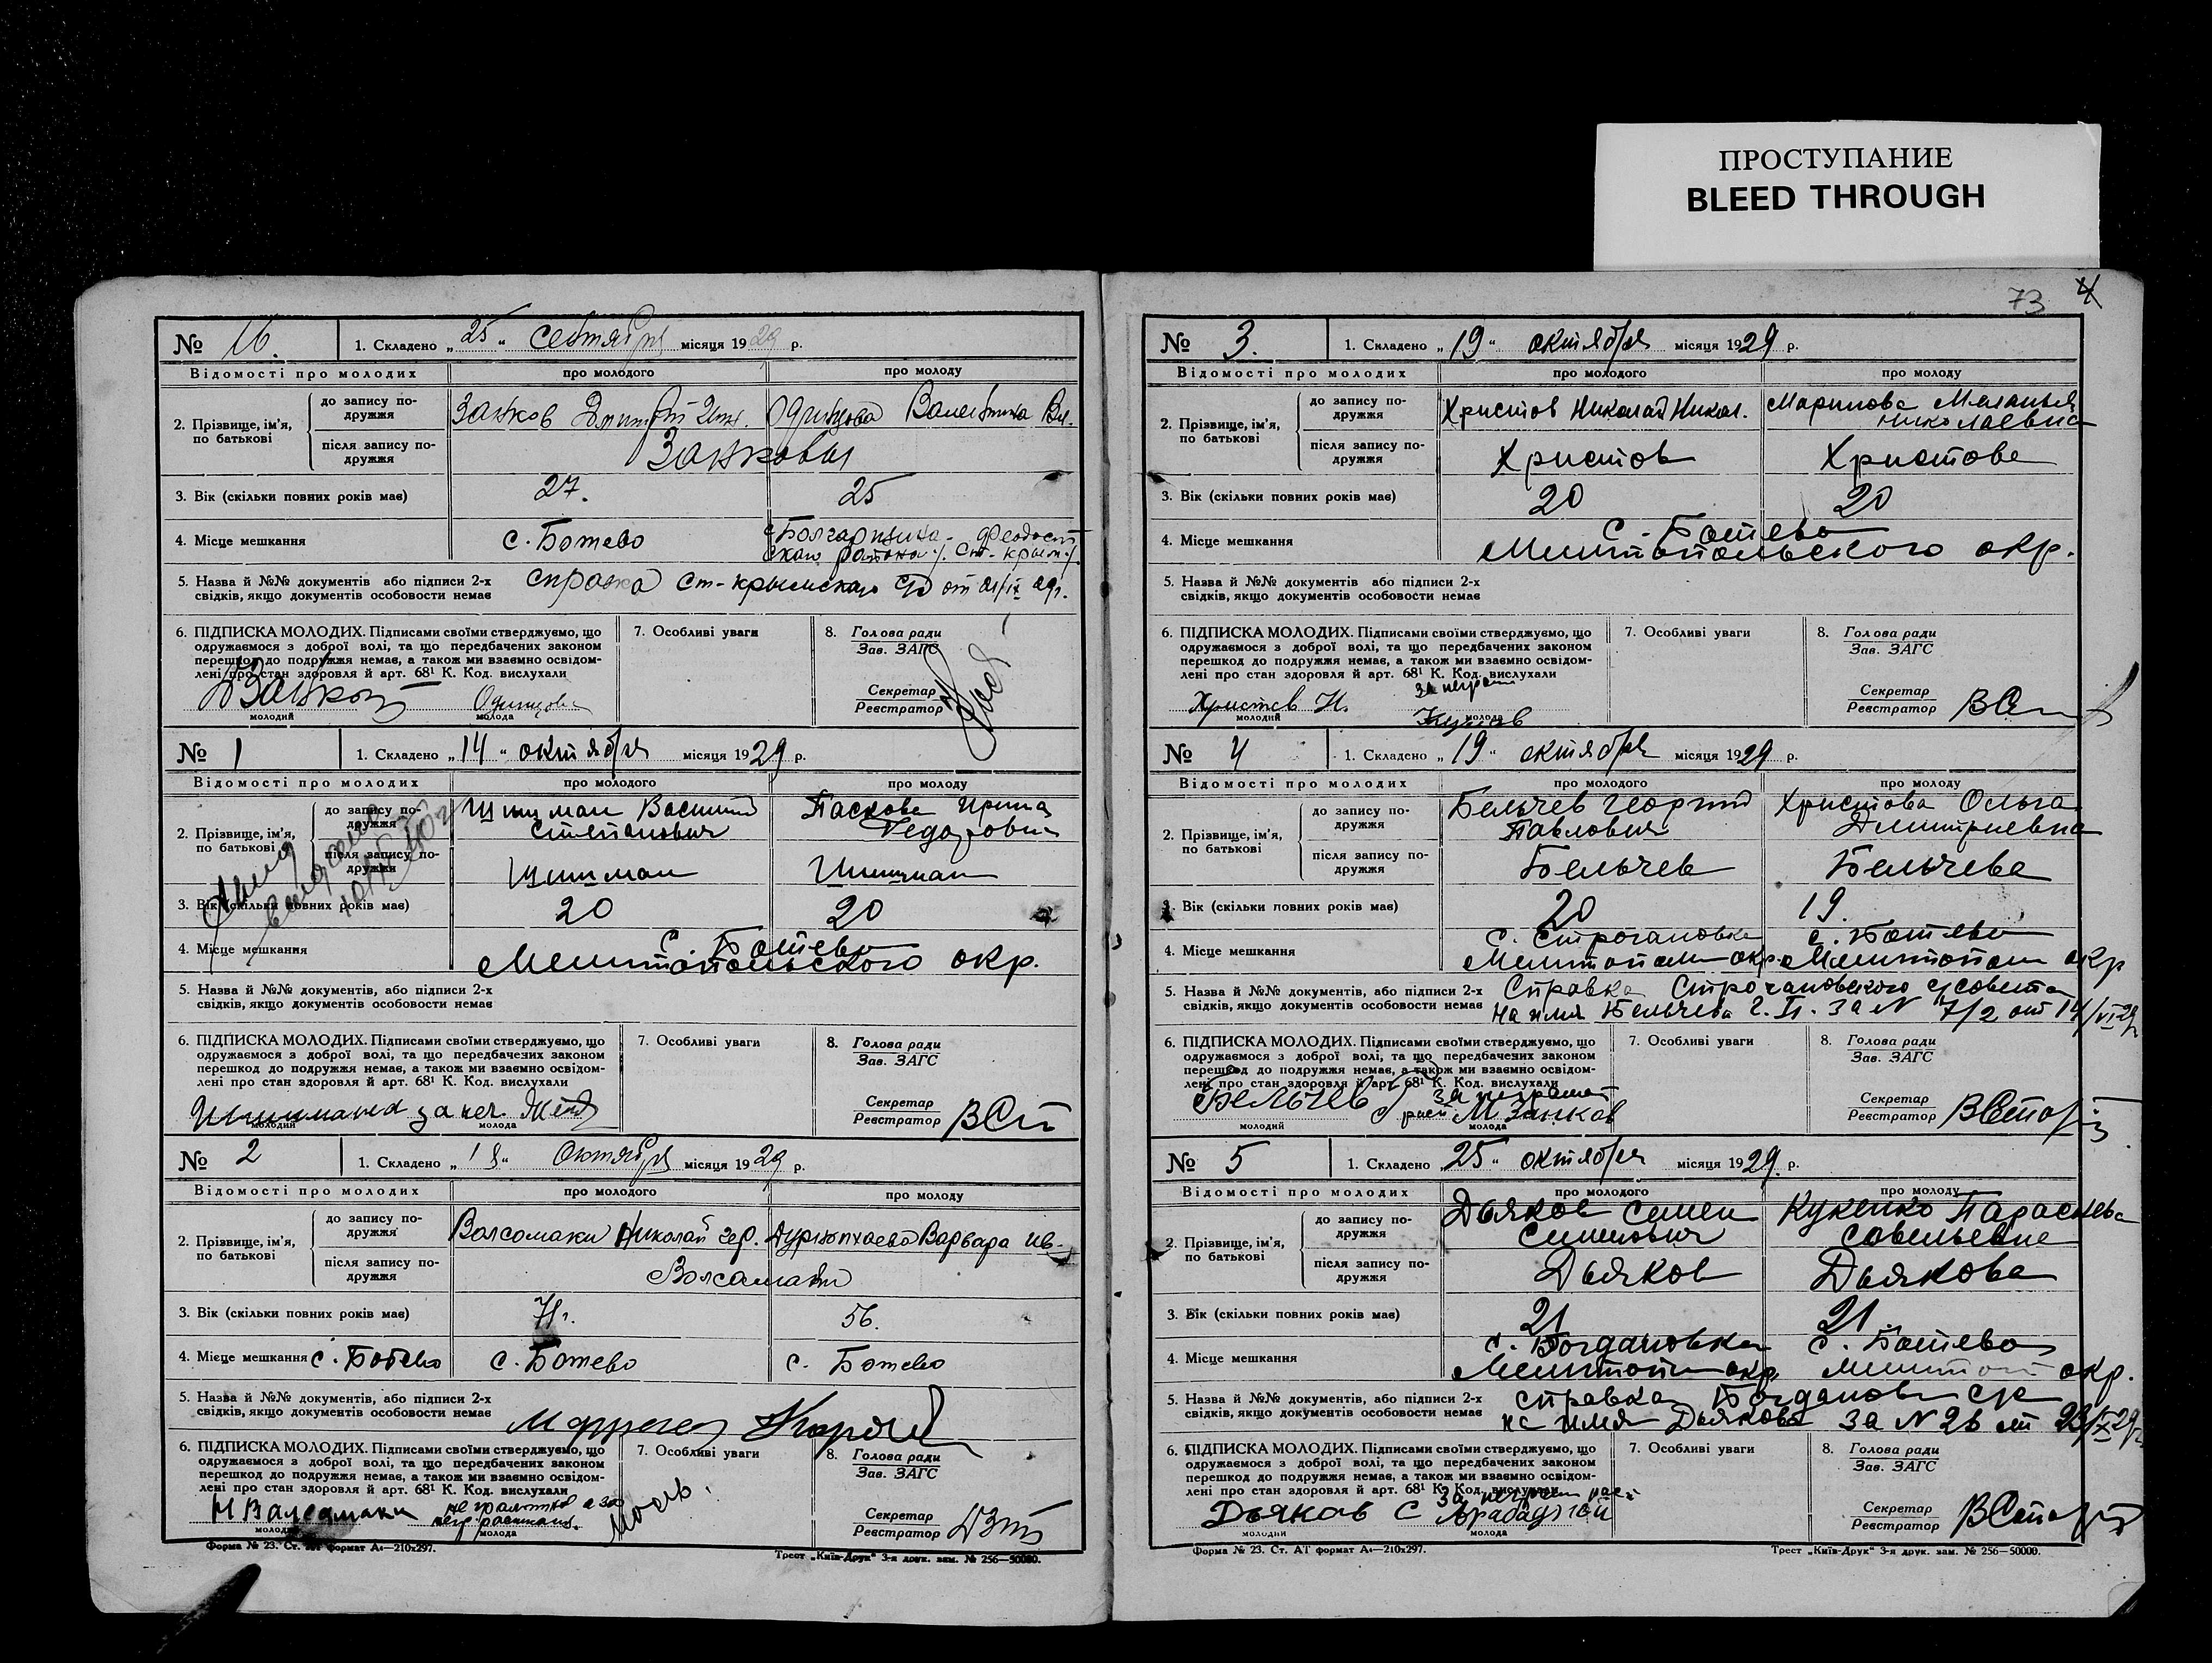 ПРОСТУПАНИЕ
BLEED THROUGH
73 4
№ 16. 1. Складено „25“ сентября місяця 1929 р.
Відомості про молодих про молодого про молоду
2. Прізвище, ім’я, по батькові
до запису по-
дружжя
Занков Дмитрий Одинцова Валентина Вл.
після запису по-
дружжя
Занковы
3. Вік (скільки повних років має) 27. 25
4. Місце мешкання с. Ботево с. Болгарщина - Феодосий
ского района /. Ст-крым /.
5. Назва й №№ документів або підписи 2-х
свідків, якщо документів особовости немає
справка Ст-крымского от 21/IX 29г.
6. ПІДПИСКА МОЛОДИХ. Підписами своїми стверджуємо, що
одружаємося з доброї волі, та що передбачених законом
перешкод до подружжя немає, а також ми взаємно освідом-
лені про стан здоровля й арт. 68¹ К. Код. вислухали
ДЗанков Одинцова
молодий молода
7. Особливі уваги
8. Голова ради
Зав. ЗАГС
Секретар
Реєстратор
№ 1 1. Складено „14“ октября місяця 1929 р.
Відомості про молодих про молодого про молоду
2. Прізвище, ім’я,
по батькові
до запису по-
дружжя
Шишман Василий Паскова Ирина
Степанович Федоровна
після запису по-
дружжя
Шишман Шишман
3. Вік (скільки повних років має) 20 20
4. Місце мешкання с. Ботево
Мелитопольского окр.
5. Назва й №№ документів, або підписи 2-х
свідків, якщо документів особовости немає
6. ПІДПИСКА МОЛОДИХ. Підписами своїми стверджуємо, що
одружаємося з доброї волі, та що передбачених законом
перешкод до подружжя немає, а також ми взаємно освідом-
лені про стан здоровля й арт. 68¹ К. Код. вислухали
за нег.
молодий молода
7. Особливі уваги
8. Голова ради
Зав. ЗАГС
Секретар
Реєстратор
№ 2 1. Складено „18“ октября місяця 1929 р.
Відомості про молодих про молодого про молоду
2. Прізвище, ім’я,
по батькові
до запису по-
дружжя
Валсамаки Николай Варвара Ив.
після запису по-
дружжя
Валсамаки
3. Вік (скільки повних років має) 71г. 56.
4. Місце мешкання с. Ботево с. Ботево с. Ботево
5. Назва й №№ документів, або підписи 2-х
свідків, якщо документів особовости немає
6. ПІДПИСКА МОЛОДИХ. Підписами своїми стверджуємо, що
одружаємося з доброї волі, та що передбачених законом
перешкод до подружжя немає, а також ми взаємно освідом-
лені про стан здоровля й арт. 68¹ К. Код. вислухали
Н Валсамаки
молодий молода
7. Особливі уваги
8. Голова ради
Зав. ЗАГС
Секретар
Реєстратор
Форма № 23. Ст. АТ формат А₄—210х297. Трест „Київ-Друк“ 3-я друк. зам. № 256—50000.
№ 3. 1. Складено „19“ октября місяця 1929 р.
Відомості про молодих про молодого про молоду
2. Прізвище, ім’я,
по батькові
до запису по-
дружжя
Христов Николай Никол. Маринова Меланья
Николаевна
після запису по-
дружжя
Христов Христова
3. Вік (скільки повних років має) 20 20
4. Місце мешкання с. Ботево
Мелитопольского окр.
5. Назва й №№ документів або підписи 2-х
свідків, якщо документів особовости немає
6. ПІДПИСКА МОЛОДИХ. Підписами своїми стверджуємо, що
одружаємося з доброї волі, та що передбачених законом
перешкод до подружжя немає, а також ми взаємно освідом-
лені про стан здоровля й арт. 68¹ К. Код. вислухали
Христов Н. за неграм
молодий молода
7. Особливі уваги
8. Голова ради
Зав. ЗАГС
Секретар
Реєстратор
№ 4 1. Складено „19“ октября місяця 1929 р.
Відомості про молодих про молодого про молоду
2. Прізвище, ім’я,
по батькові
до запису по-
дружжя
Бельчев Георгий Христова Ольга
Павлович Дмитриевна
після запису по-
дружжя
Бельчев Бельчева
3. Вік (скільки повних років має) 20 19.
4. Місце мешкання с. Строгановка с. Ботево
Мелитополь окр. Мелитополь окр
5. Назва й №№ документів, або підписи 2-х
свідків, якщо документів особовости немає
Справка Строгановского с/совета
на имя Бельчева Г. П. за N 7/2 от 14/VI 29г
6. ПІДПИСКА МОЛОДИХ. Підписами своїми стверджуємо, що
одружаємося з доброї волі, та що передбачених законом
перешкод до подружжя немає, а також ми взаємно освідом-
лені про стан здоровля й арт. 68¹ К. Код. вислухали
Бельчев за неграмот
расп М. Занков
молодий молода
7. Особливі уваги
8. Голова ради
Зав. ЗАГС
Секретар
Реєстратор
№ 5 1. Складено „25“ октября місяця 1929. р.
Відомості про молодих про молодого про молоду
2. Прізвище, ім’я,
по батькові
до запису по-
дружжя
Дьяков Семен Кукенко Параскева
Семенович Савельевна
після запису по-
дружжя
Дьяков Дьякова
3. Вік (скільки повних років має) 21 21
4. Місце мешкання с. Богдановка с. Ботево
Мелитоп окр. Мелитоп окр.
5. Назва й №№ документів, або підписи 2-х
свідків, якщо документів особовости немає
справка Богдановск с/с
на имя Дьякова за N 26 от 23/X 29г
6. ПІДПИСКА МОЛОДИХ. Підписами своїми стверджуємо, що
одружаємося з доброї волі, та що передбачених законом
перешкод до подружжя немає, а також ми взаємно освідом-
лені про стан здоровля й арт. 68¹ К. Код. вислухали
Дьяков С за неграм расп
Арабаджий
молодий молода
7. Особливі уваги
8. Голова ради
Зав. ЗАГС
Секретар
Реєстратор
Форма № 23. Ст. АТ формат А₄—210х297. Трест „Київ-Друк“ 3-я друк. зам. № 256—50000.